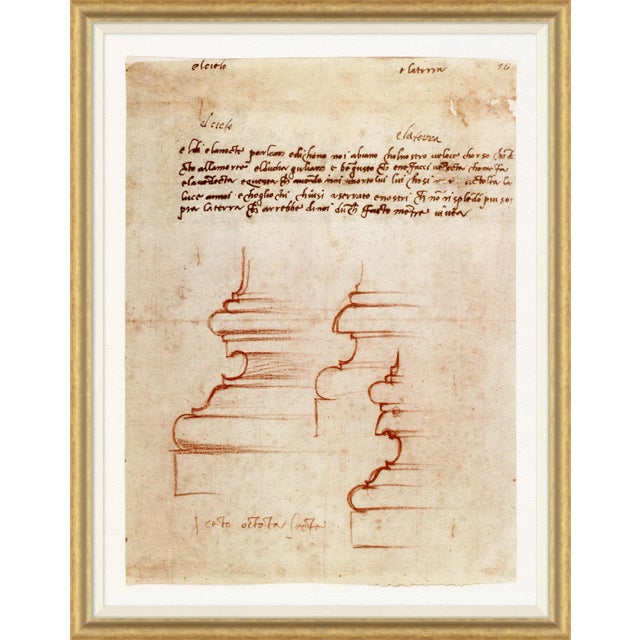 el cielo e la terra 10
el cielo e la terra
el dì e la nocte parlano e dichono noi abiano chol nostro veloce chorso chōd
octo alla morte el ducha guliano e bē g usto che e ne facci vendecta chome fa
e la vendecta e questa che avendo noi morto lui lui chosi morto a tolta la
luce a noi e chogli ochi chiusi a serrato e nostri che nō risplēdō piu so
pra la terra che arrebbe di noi dūche facto mētre vivea
cēto octōta secte